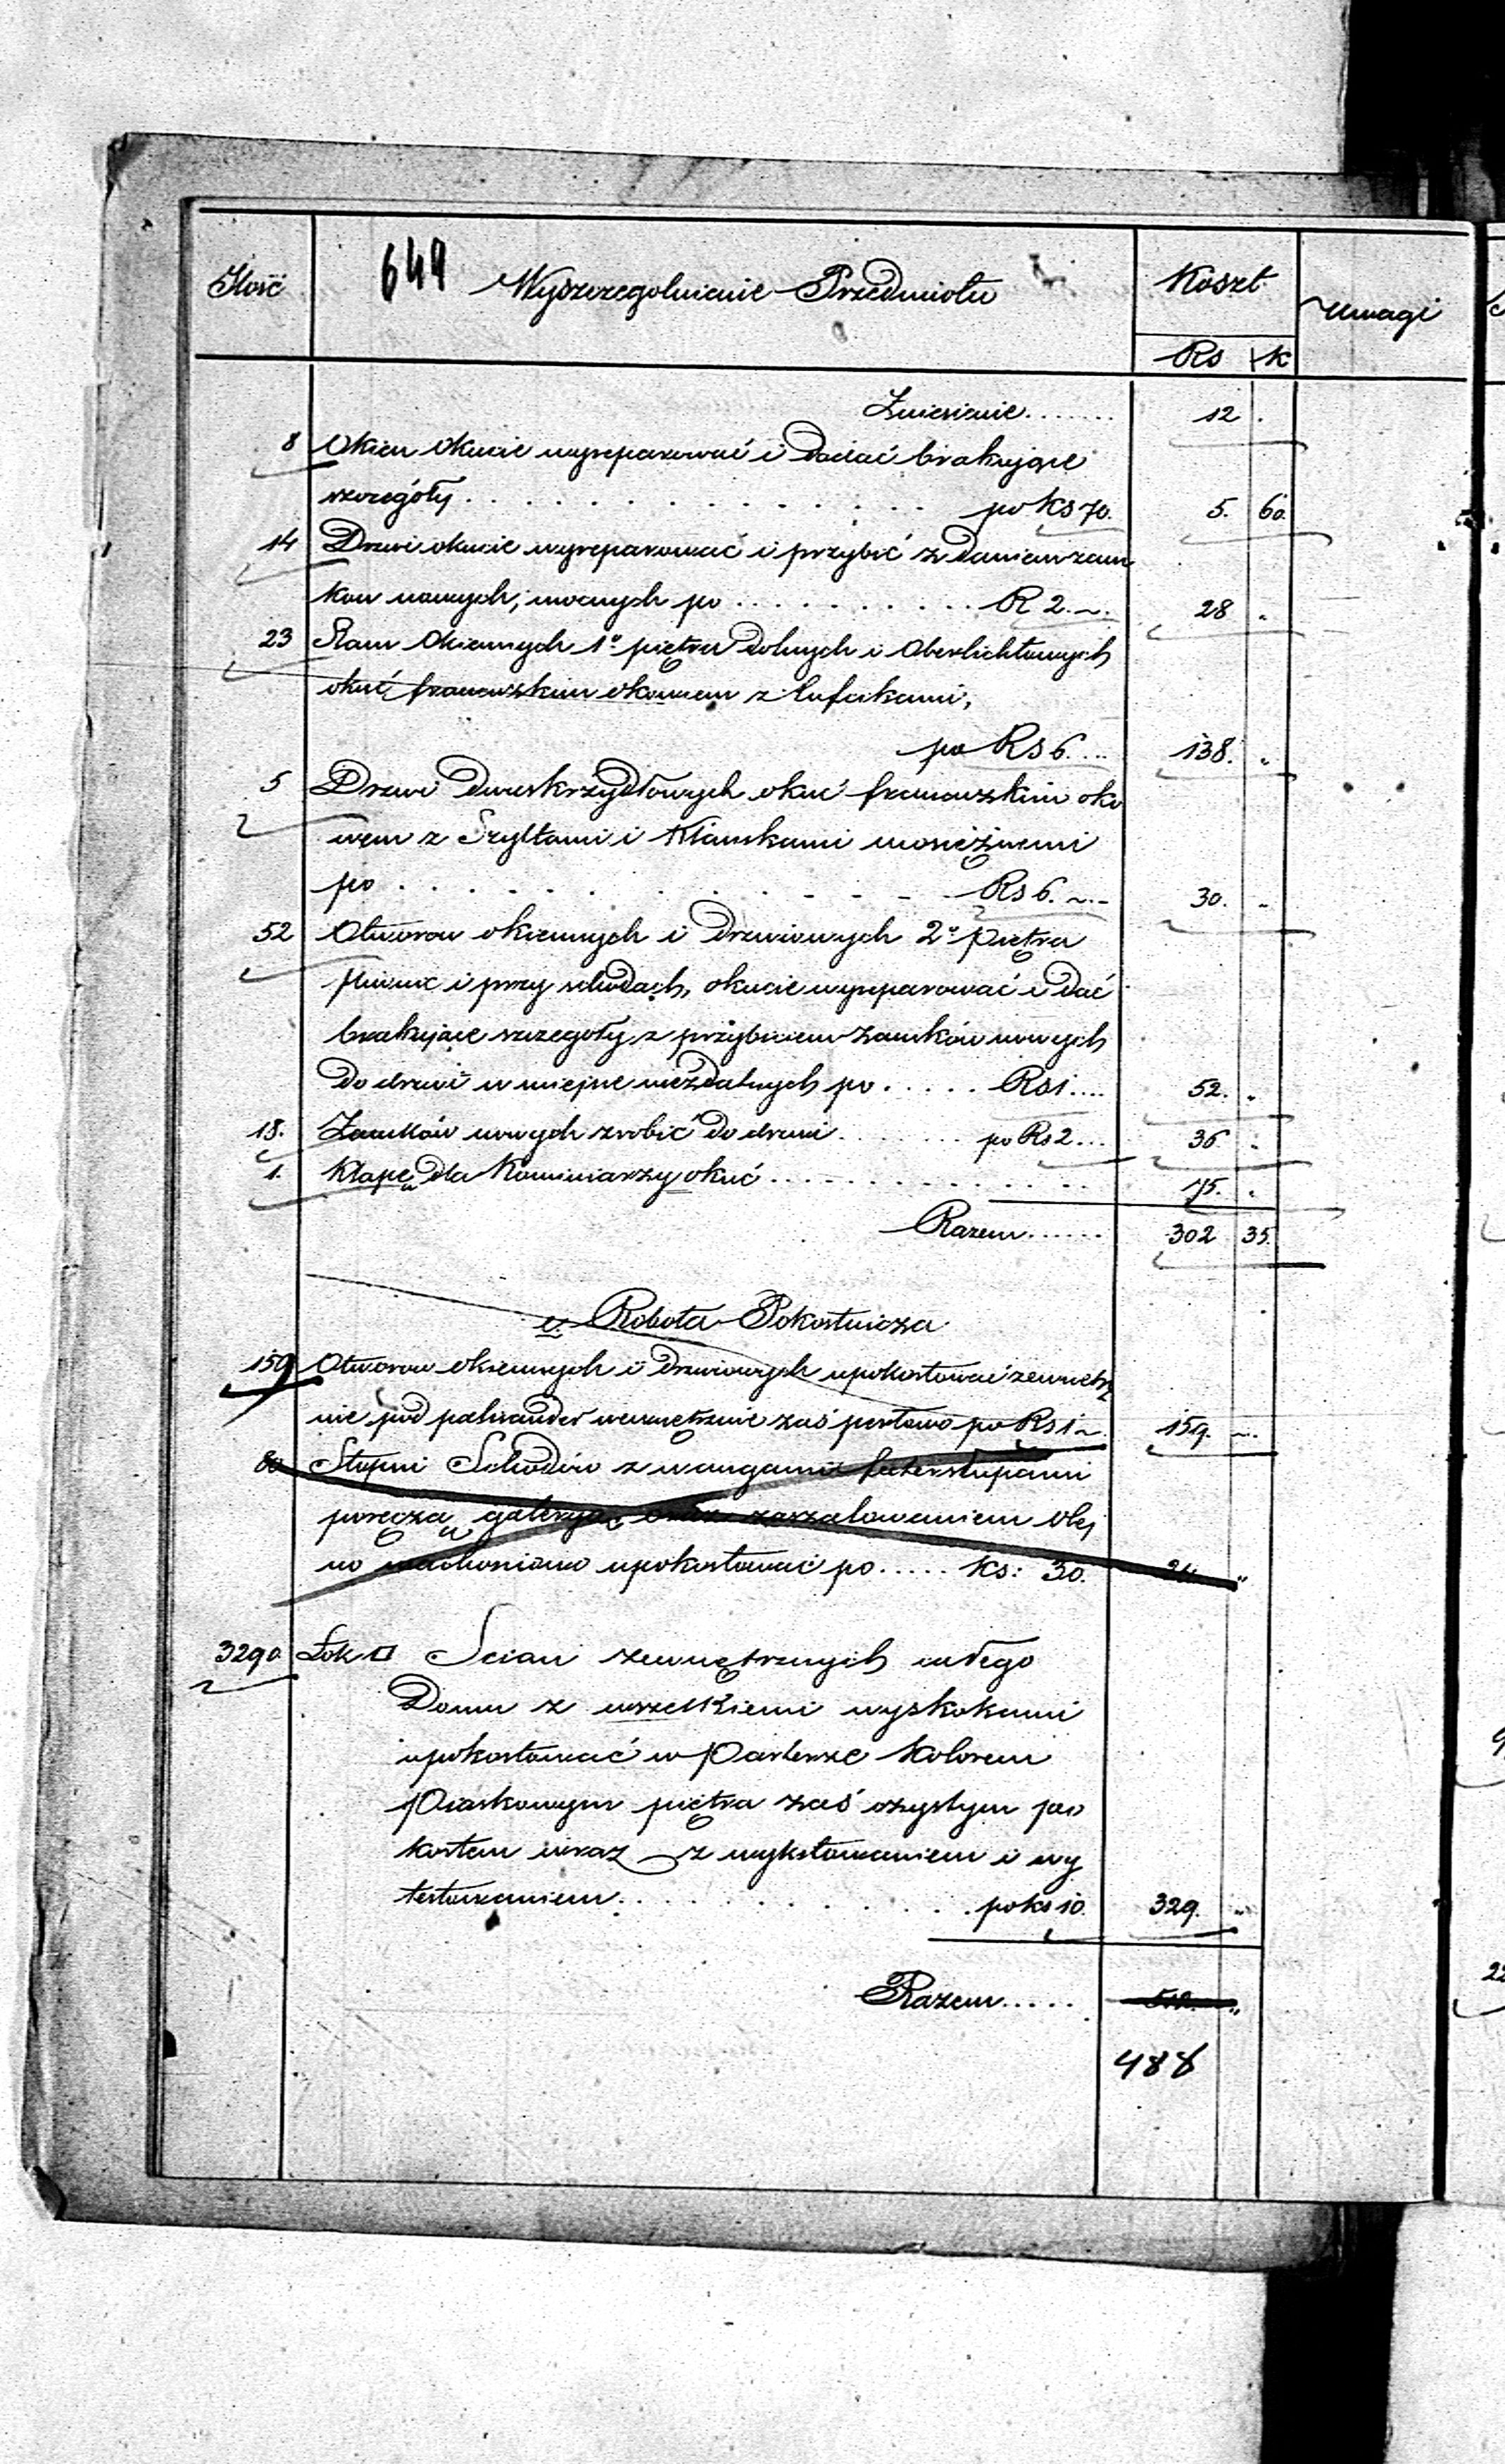 Ilość 649 Wyszczegolnienie Przedmiotu Koszt Uwagi
Rs K
Zniesienie....... 12 .
8 Okien okucie wyreparować i dodać brakujące
szczegóły . . . . . . . . . . po Ks 70. 5. 60.
14 Drzwi okucie wyreparować i przybić z daniem zam
kow nowych, mocnych po . . . . . . . . . R 2. ~. 28 "
23 Ram Okiennych 1o piętra dolnych i oberlichtowych
okuć francuzkim okowem z lufcikami,
po Rs 6.... 138. "
5 Drzwi dwuskrzydłowych okuć francuzkim oko
wem z Szyltami i Klamkami mosiężnemi
po . . . . . . . . . . Rs 6. ~.- 30. "
52 Otworow okiennych i drzwiowych 2o piętra
piwnic i przy schodach, okucie wyreparować i dać
brakujące szczegoły z przybiciem zamków nowych
do drzwi w miejsce niezdatnych po ..... Rs 1.... 52. "
18. Zamków nowych zrobić do drzwi ........ po Rs 2... 36 "
1. Klapę dla Kominiarzy okuć . . . . . . . . . . . " 75. "
Razem...... 302 35.
Robota Pokostnicza
159 Otworow okiennych i drzwiowych upokostować zewnętrz
nie pod palisander wewnętrznie zaś perłowo po Rs 1 ~ 159. ~.
80 Stopni Schodów z wangami futerstupami
poręczą galeryą oraz zaszalowaniem olej
no machoniowo upokostować po ..... Ks: 30. 24 "
3290 Łok □ Scian zewnętrznych całego
Domu z wszelkiemi wyskokami
upokostować w Parterze Kolorem
Piaskowym piętra zaś czystym po
kostem wraz z wykitowaniem i wy
. . . . . . . . . . po ks 10. 329. "
Razem ..... 512. "
488